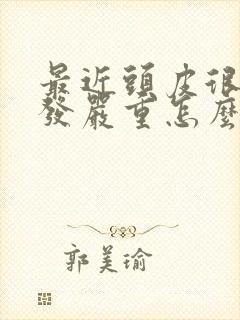 最近頭皮很
發嚴重怎麼
郭美瑜